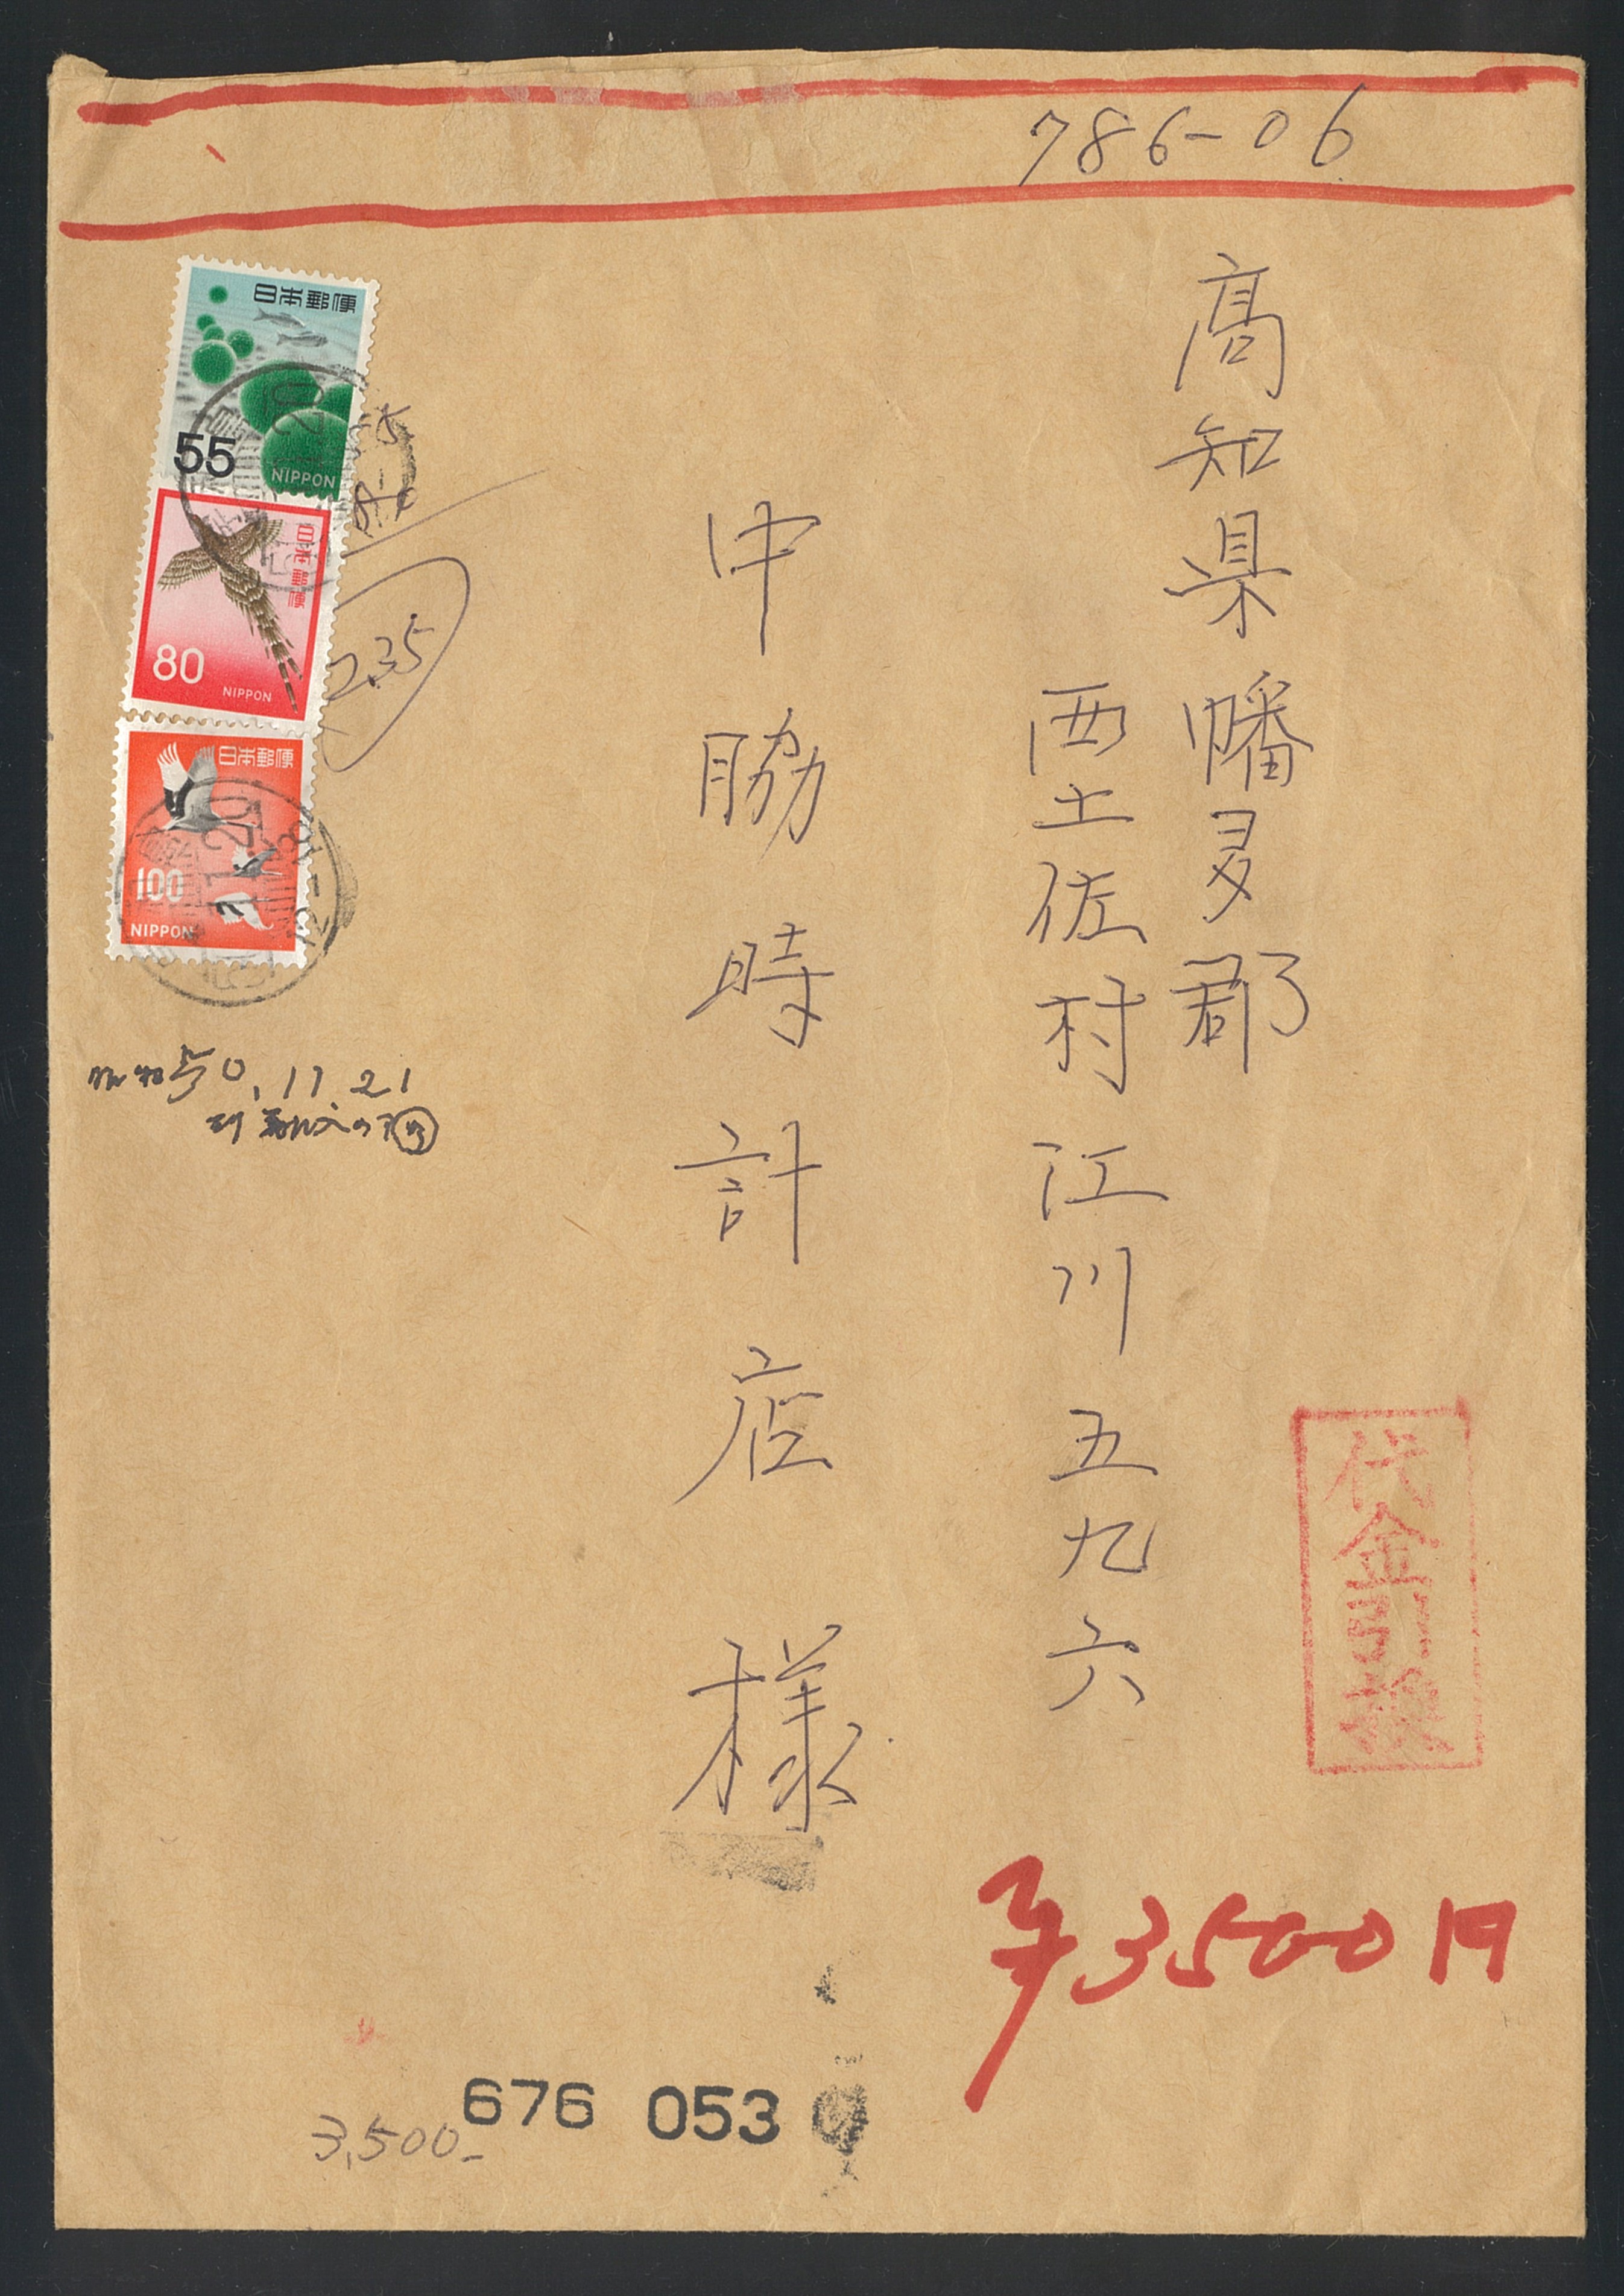 786-06
高知県幡多郡
西土佐村江川五九六
中脇時計店様
日本郵便
55
NIPPON
日本郵便
80
NIPPON
235
日本郵便
100
NIPPON
50.11.21
代金引換
¥3500円
676 053
3,500-